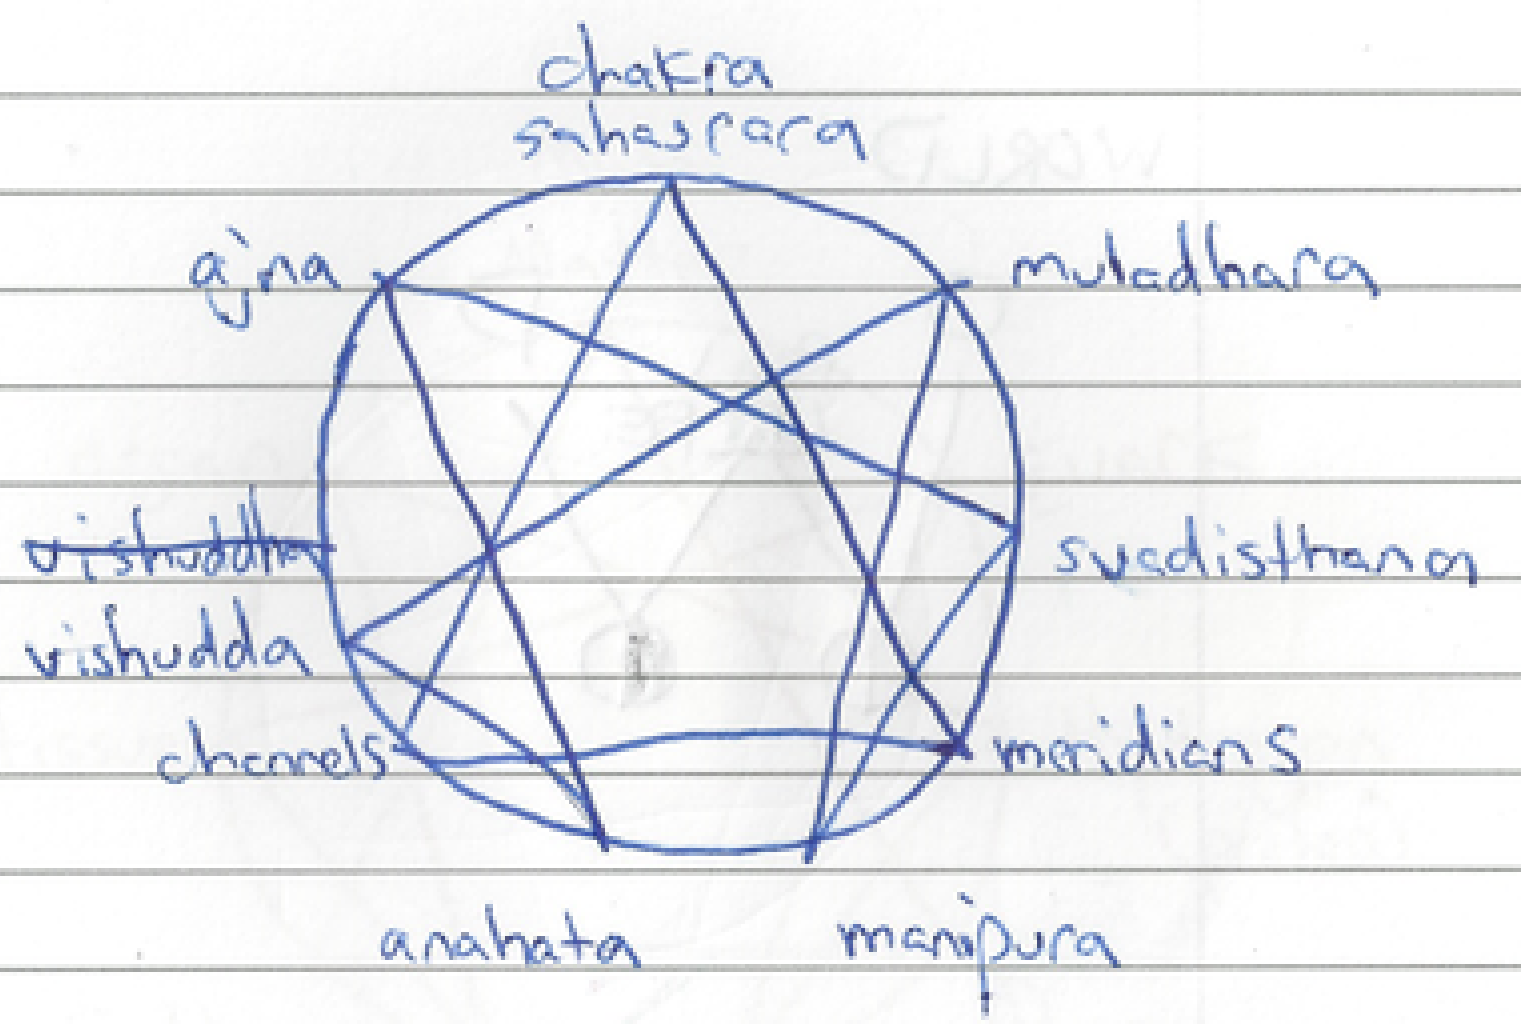 chakra
sahasrara
ajna
muladhara
vishuddha
svadisthana
vishudda
channels
meridians
anahata
manipura